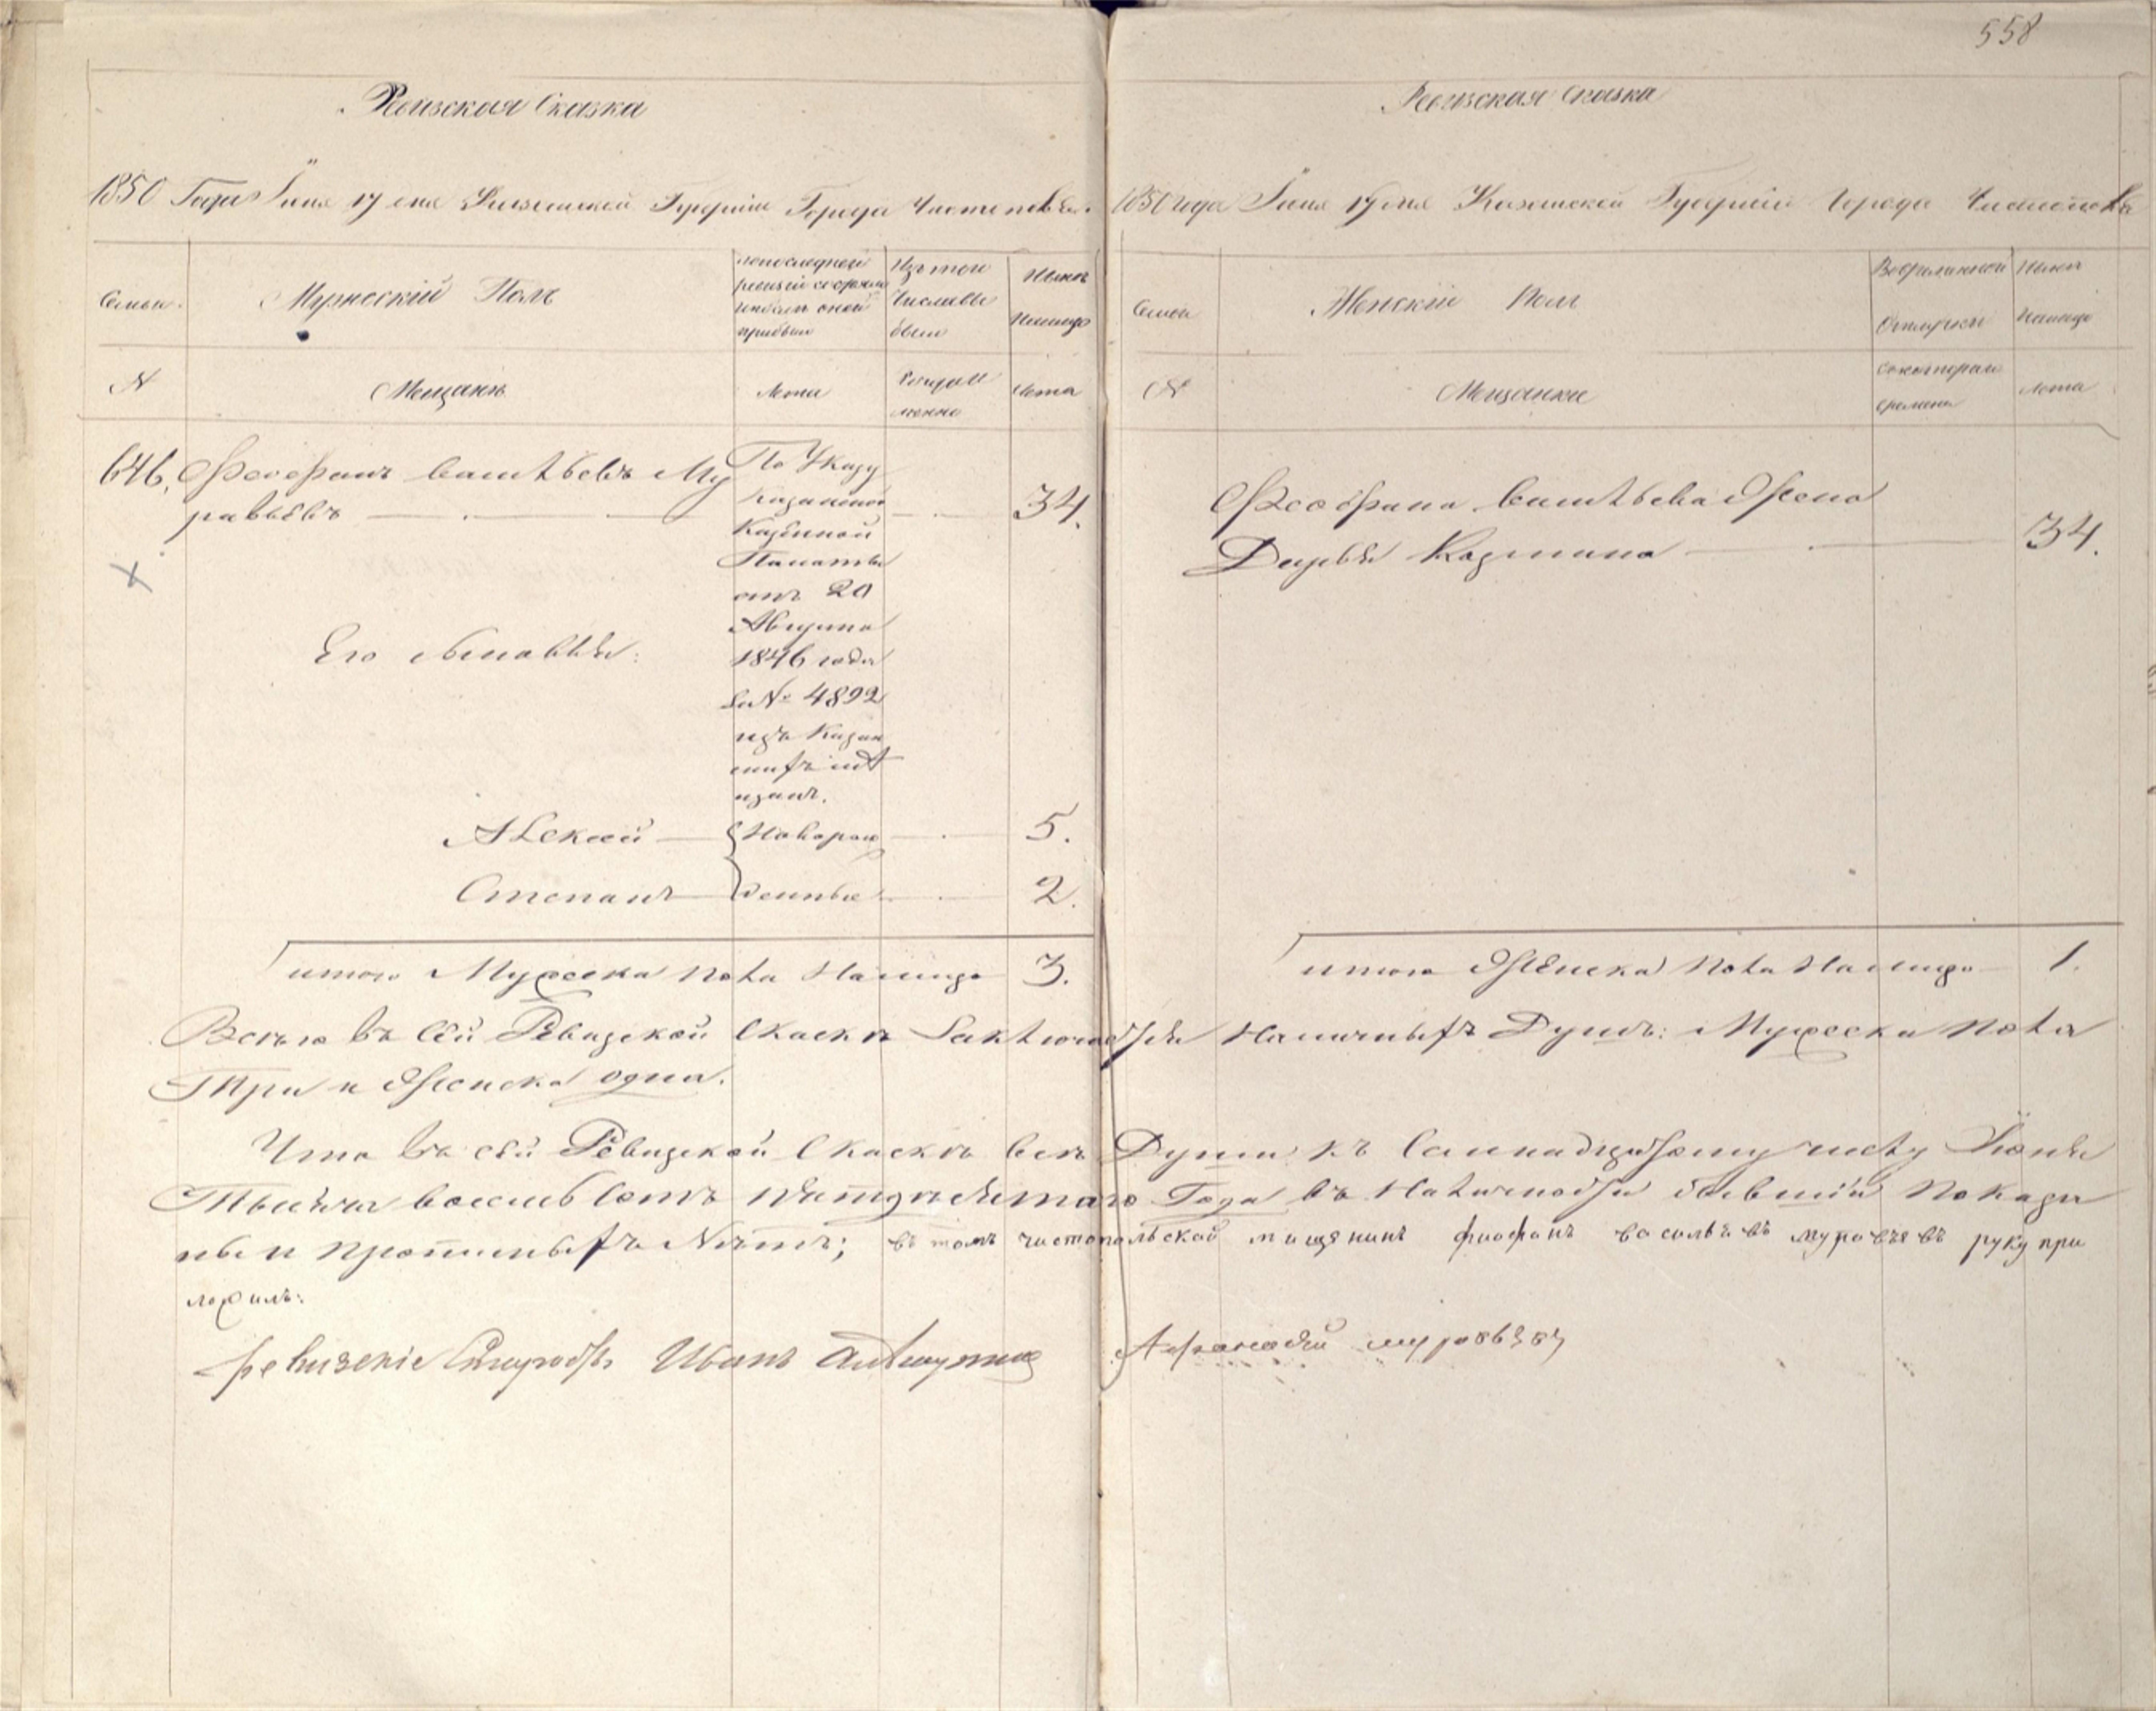 558
Ревизская Сказка
1850 Года Іюня 17 дня Казанской Губерніи Города Чистополя.
Семьи.
Мужескій Полъ
По последней
ревизіи состояло
и после оной
прибыло
Изъ того
числа вы
было
Ныне
На лицо
№
Мещане
Лета
Когда и
менно
Лета
646. Феофанъ Васильевъ Му
равьевъ
34.
По Указу
Казанской
Казенной
Палаты
отъ 20
Августа
1846 года
за № 4892
изъ Казан
скихъ ме
щанъ.
Его сыновья:
Алексей
Новорож
5.
Степанъ
денные
2.
итого Мужеска пола На лицо 3.
Ревизская Сказка
1850 года Іюня 17 дня Казанской Губерніи Города Чистополя
Семьи
Женскій Полъ
Во временной
Отлучке
Ныне
Налицо
№
Мещанки
Съ которого
времени
Лета
Феофана Васильева Жена
Дарья Козмина
34.
итого Женска пола На лицо 1.
Всего въ сей Ревизской Скаске Заключается Наличныхъ Душъ: Мужеска пола
Три и Женска одна.
Что въ сей Ревизской Скаске все Души къ Семнадцатому числу Іюня
Тысяча восемь сотъ пятьдесятаго Года въ Наличности бывшія показа
ны и прописныхъ Нетъ; въ томъ чистопольской мищенинъ фиофанъ васильевъ муравьевъ руку при
ложилъ:
Иванъ